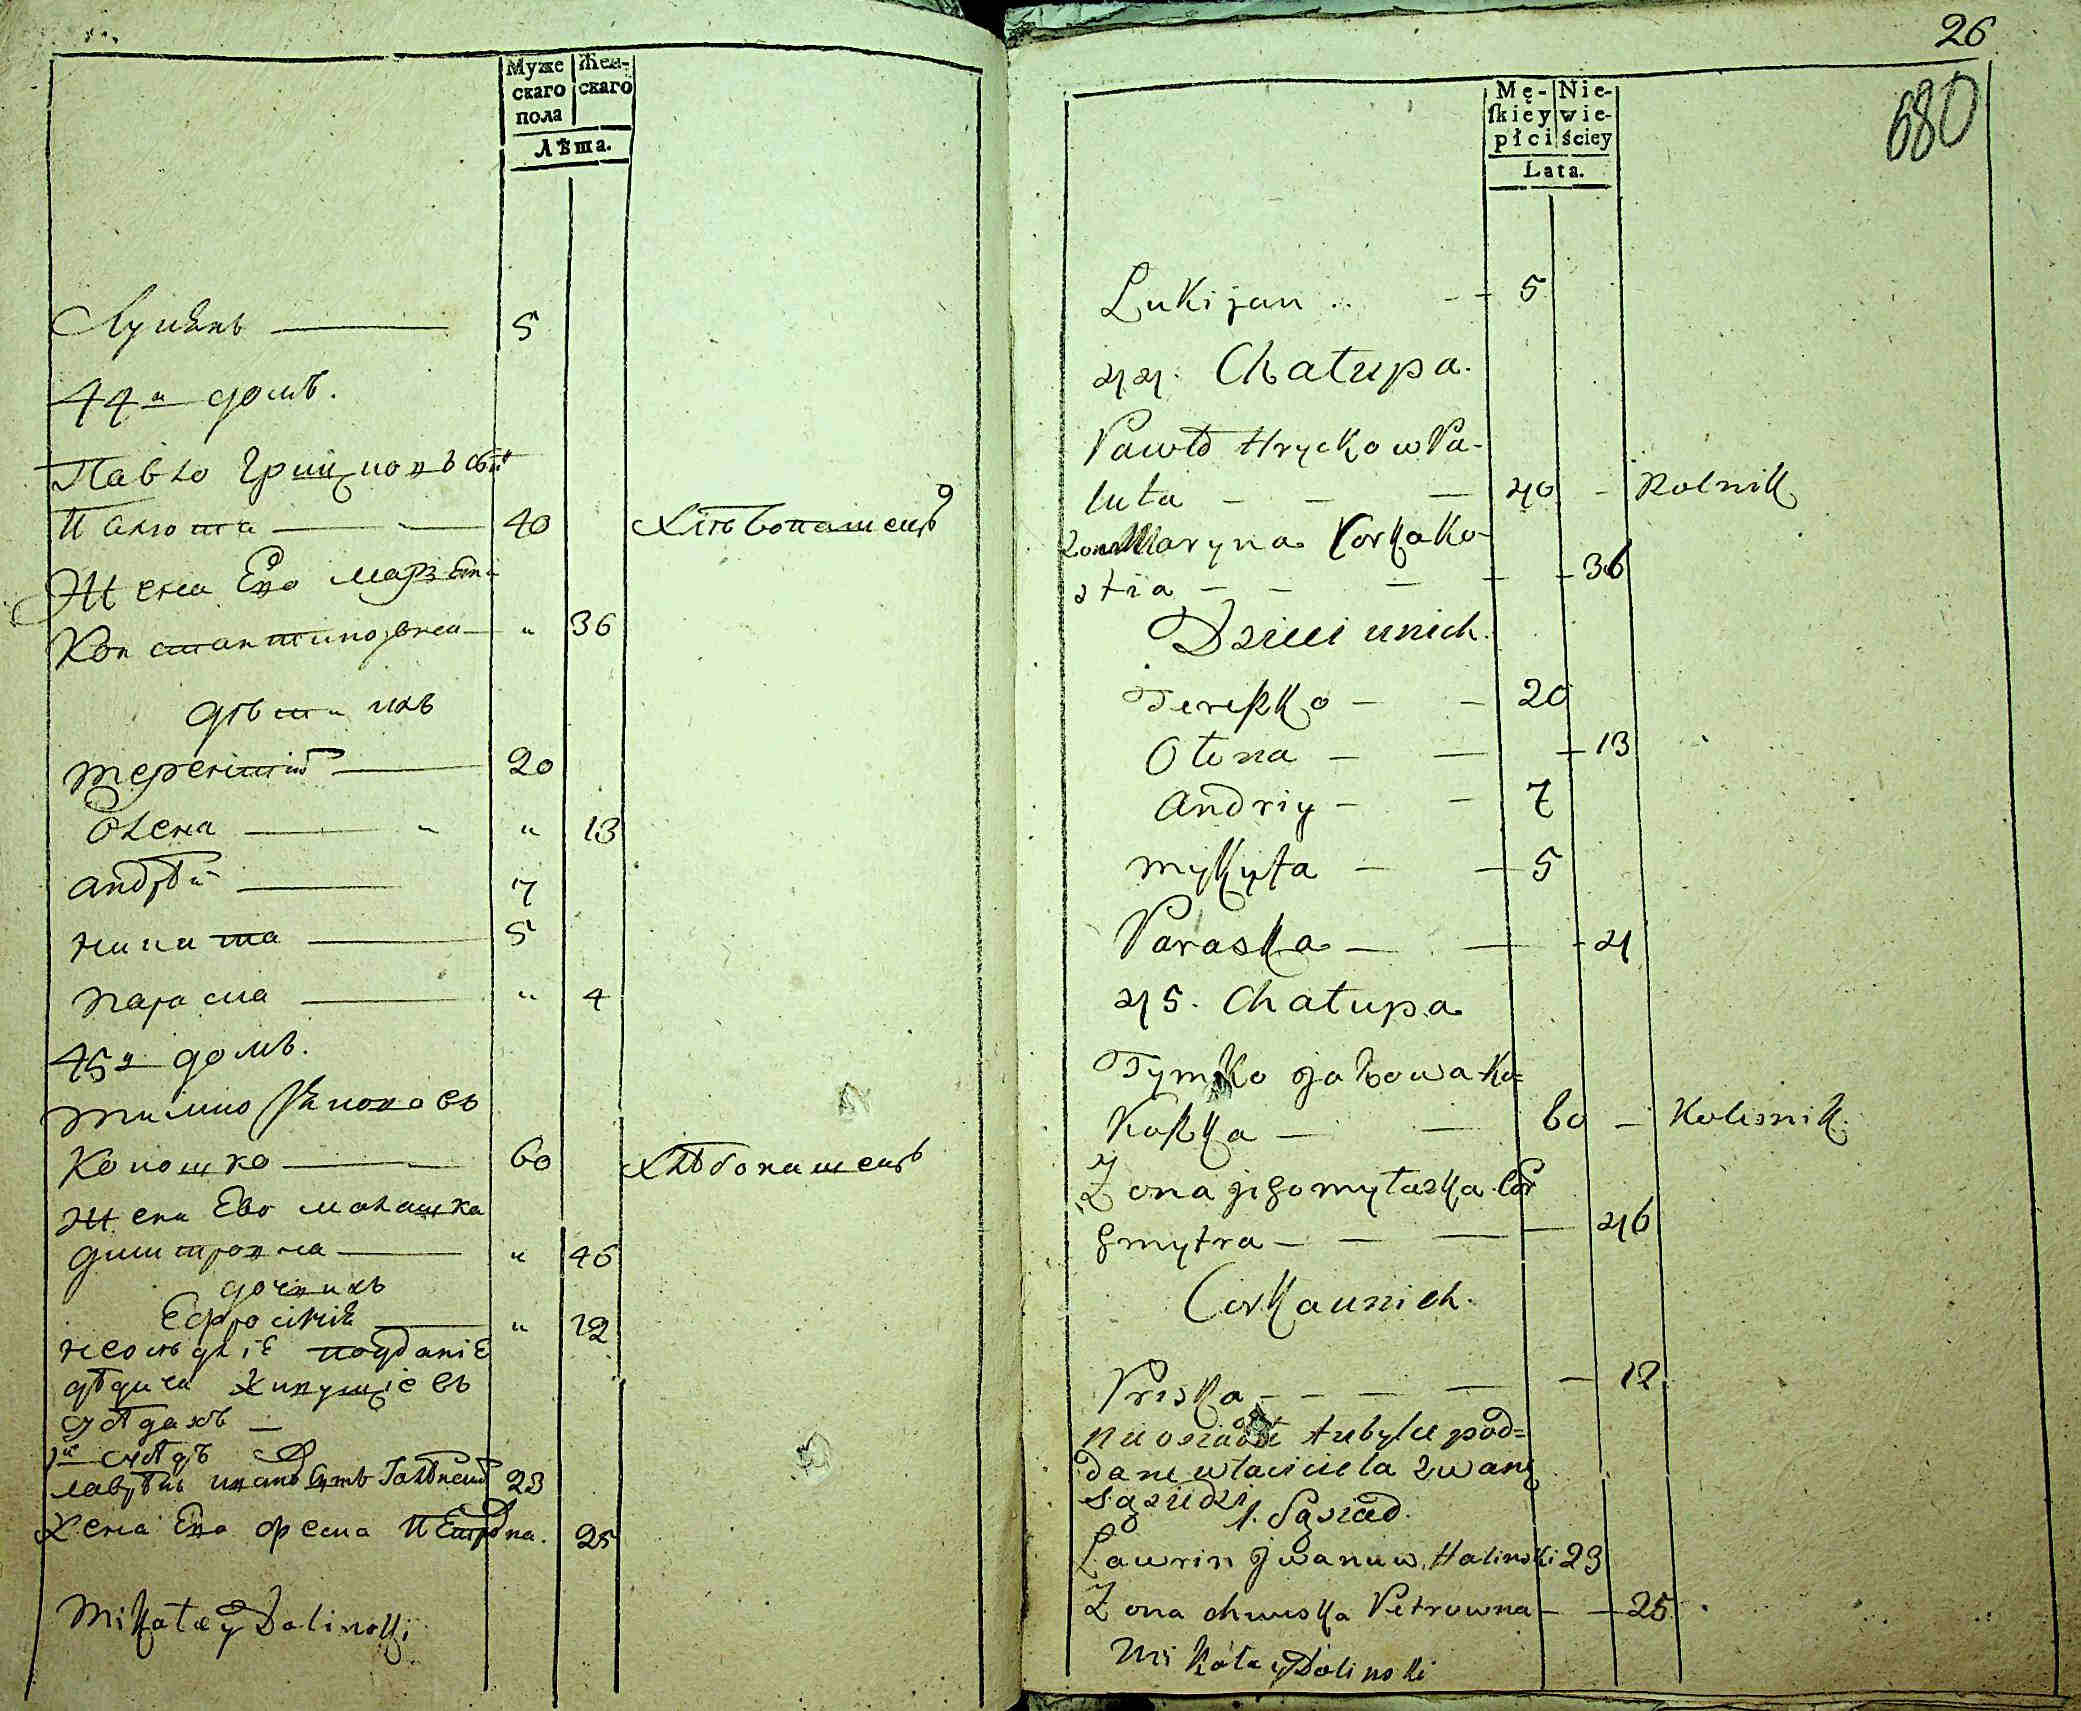 Муже
скаго
пола
Жен-
скаго
Лѣта.
Лукянъ 5
44й домъ.
Павло Грицковъ сынъ
Палюта 40 Хлѣбопашецъ
Жена Ево
Константиновна " 36
дѣти ихъ
терентій 20
Олена " 13
андрѣй 7
никита 5
параска " 4
45й домъ.
тимко Яковлевъ
Кокошко 60 Хлѣбопашецъ
жена Ево малашка
димитровна " 46
дочь ихъ
Ефросинія " 12
неосѣдліе подданіе
дѣдича живущіе въ
1й
лаврѣнъ ивановъ сынъ 23
Жена Ево феска Петровна. 25
Mikołay Dolinski
26
680
Mę-
skiey
płci
Nie-
wie-
ściey
Lata.
Lukijan 5
44. Chałupa.
Pawło Hryckow Pa-
luta 40 Rolnik
Zona Maryna Corka Ko-
stia 36
Dzieci unich.
Tereszko 20
Olena 13
Andriy 7
Mykyta 5
Paraska 4
45. Chałupa
Tymko Jakowa Ko-
koszka 60 Kolesnik.
Zona jego mytaszka Cor
Dmytra 46
Corka unich.
Priska 12
Nie osiadłe tubylce pod-
dane własciciela zwane
sąsiedzi
1. Sąsiad.
Lawrin Jwanuw Halinski 23
Zona chweska Petrowna 25
Mikołay Dolinski